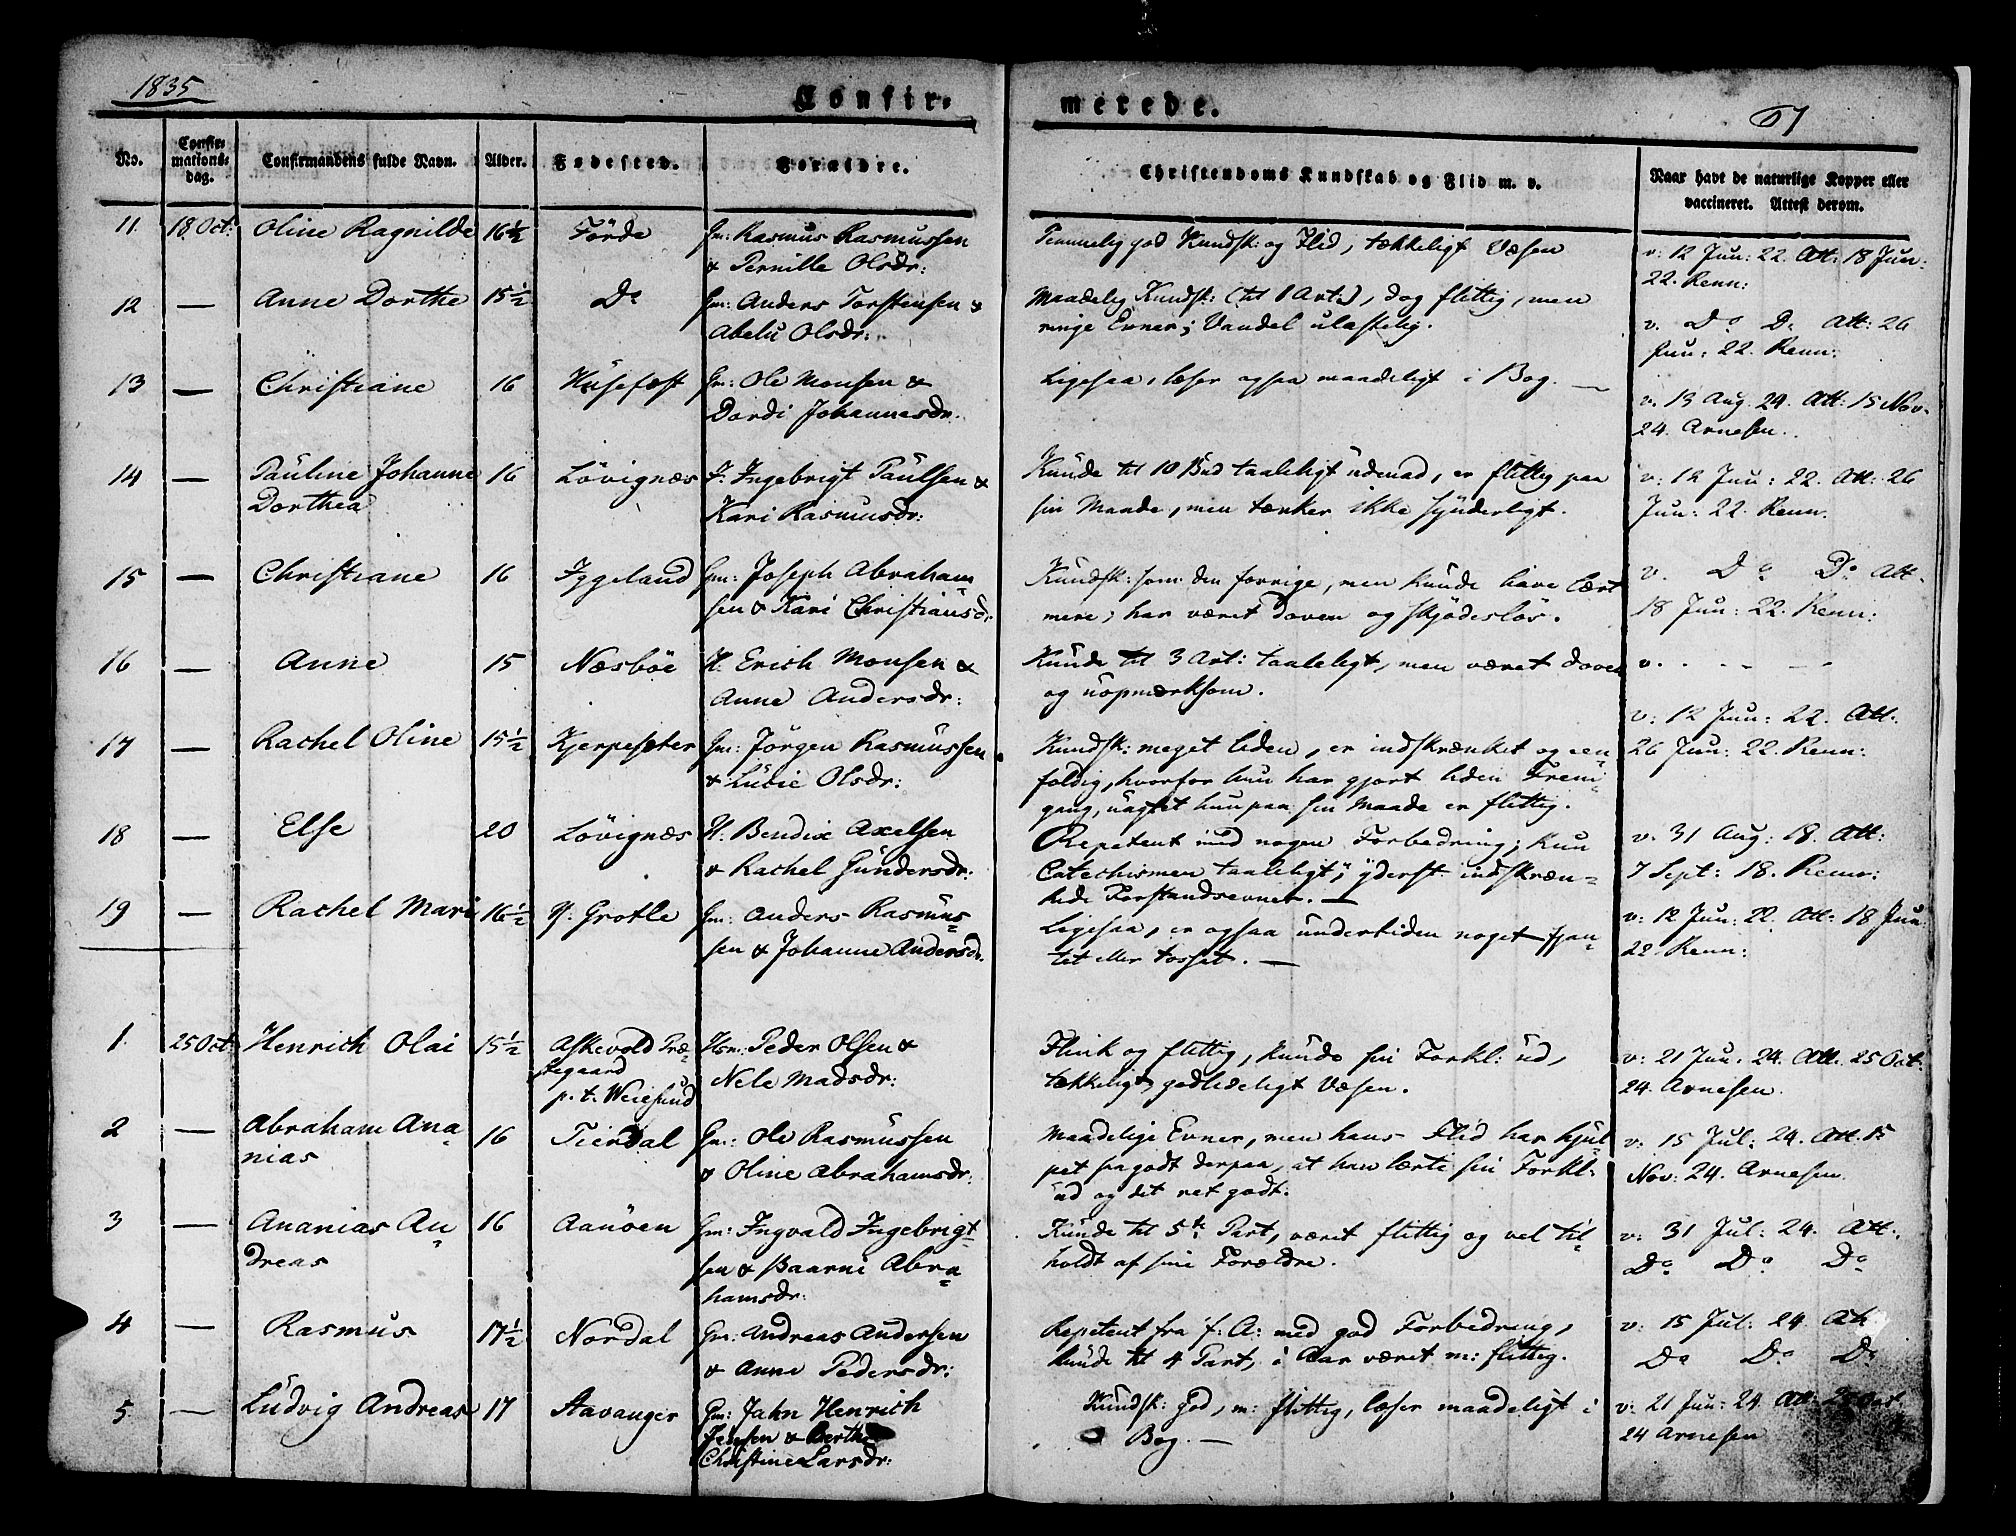 1835
Confir-
merede.
61
No.
Confir-
mations-
dag.
Confirmandens fulde Navn.
Alder.
Fødested.
Forældre.
Christendoms Kundskab og Flid m. v.
Naar havt de naturlige Kopper eller
vaccineret. Attest derom.
11. 18 Oct: Oline Ragnilde 16½ Förde Gm: Rasmus Rasmussen
& Pernille Olsdr:
Temmelig god Kundsk: og Flid, tækkeligt Væsen
v: 12 Jun: 22. Att: 18 Jun:
22. Renn:
12 — Anne Dorthe 15½ Do Gm: Anders Torstensen &
Abelu Olsdr:
Maadelig Kundsk: (til 1 Art:), dog flittig, men
ringe Evner; Vandel ulastelig.
v. Do Do Att: 26
Jun: 22. Renn:
13 — Christiane 16 Husefæst Gm: Ole Monsen &
Dordi Johannesdr:
Ligesaa, læser ogsaa maadeligt i Bog. —
v. 13 Aug. 24. Att: 15 Nov.
24. Arnesen.
14 — Pauline Johanne 16 Lövignæs F: Ingebrigt Paulsen &
Dorthea
Kari Rasmusdr:
Kunde til 10 Bud taaleligt udenad, er flittig paa
sin Maade, men tænker ikke synderligt.
v: 12 Jun: 22. Att: 26
Jun: 22. Renn:
15 — Christiane 16 Sygeland Gm: Joseph Abraham
sen & Kari Christiansdr:
Kundsk: som den forrige, men kunde have lært
mere; har været doven og skjödeslös.
v. Do Do Att.
18 Jun: 22. Renn:
16 — Anne 15 Næsböe H: Erich Monsen &
Anne Andersdr:
Kunde til 3 Art: taaleligt, men været doven
og uopmærksom.
v. - - - -
17 — Rachel Oline 15½ Kjerpesæter Gm: Jörgen Rasmussen
& Lucie Olsdr:
Kundsk: meget liden, er indskrænket og een-
foldig, hvorfor hun har gjort liden Frem-
gang, uagtet hun paa sin Maade er flittig.
v: 12 Jun: 22. Att:
26 Jun: 22. Renn:
18 — Else 20 Lövignæs H: Bendix Axelsen
& Rachel Gundersdr:
Repetent med nogen Forbedring; kun
Catechismen taaleligt; yderst indskræn-
kede Forstandsevner. —
v. 31 Aug: 18. Att:
7 Sept: 18. Renn:
19 — Rachel Mari 16½ Y: Grotle Gm: Anders Rasmus-
sen & Johanne Andersdr:
Ligesaa, er ogsaa undertiden noget fjan-
tet eller tosset. —
v: 12 Jun: 22. Att: 18 Jun:
22 Renn:
1. 25 Oct: Henrich Olai 15½ Askevold Præ- Hsm: Peder Olsen &
stegaard
p. t. Weiesund
Nele Madsdr:
Flink og flittig, kunde sin Forkl: ud,
tækkeligt, godlideligt Væsen.
v: 21 Jun: 24. Att. 25 Oct:
24. Arnesen.
2 — Abraham Ana- 16 Tierdal Gm: Ole Rasmussen
nias
& Oline Abrahamsdr:
Maadelige Evner, men hans Flid har hjul-
pet saa godt derpaa, at han lærte sin Forkl:
ud og det ret godt.
v: 15 Jul: 24. Att. 15
Nov: 24. Arnesen.
3 — Ananias An- 16 Aanöen Gm: Ingvald Ingebrigt-
dreas
sen & Baarni Abra-
hamsdr:
Kunde til 5te Part, været flittig og vel til-
holdt af sine Forældre.
v: 31 Jul: 24. Att.
Do Do Do
4 — Rasmus 17½ Nordal Gm: Andreas Andersen
& Anne Pedersdr:
Repetent fra f: A: med god Forbedring,
kunde til 4 Part, i Aar været m: flittig.
v: 15 Jul: 24. Att
Do Do Do
5. — Ludvig Andreas 17 Stavanger Gm: Jahn Henrich
Jensen & Berthe
Christine Larsdr:
Kundsk: god, m: flittig, læser maadeligt i
Bog. —
v: 21 Jun: 24. Att: 25 Oct
24 Arnesen